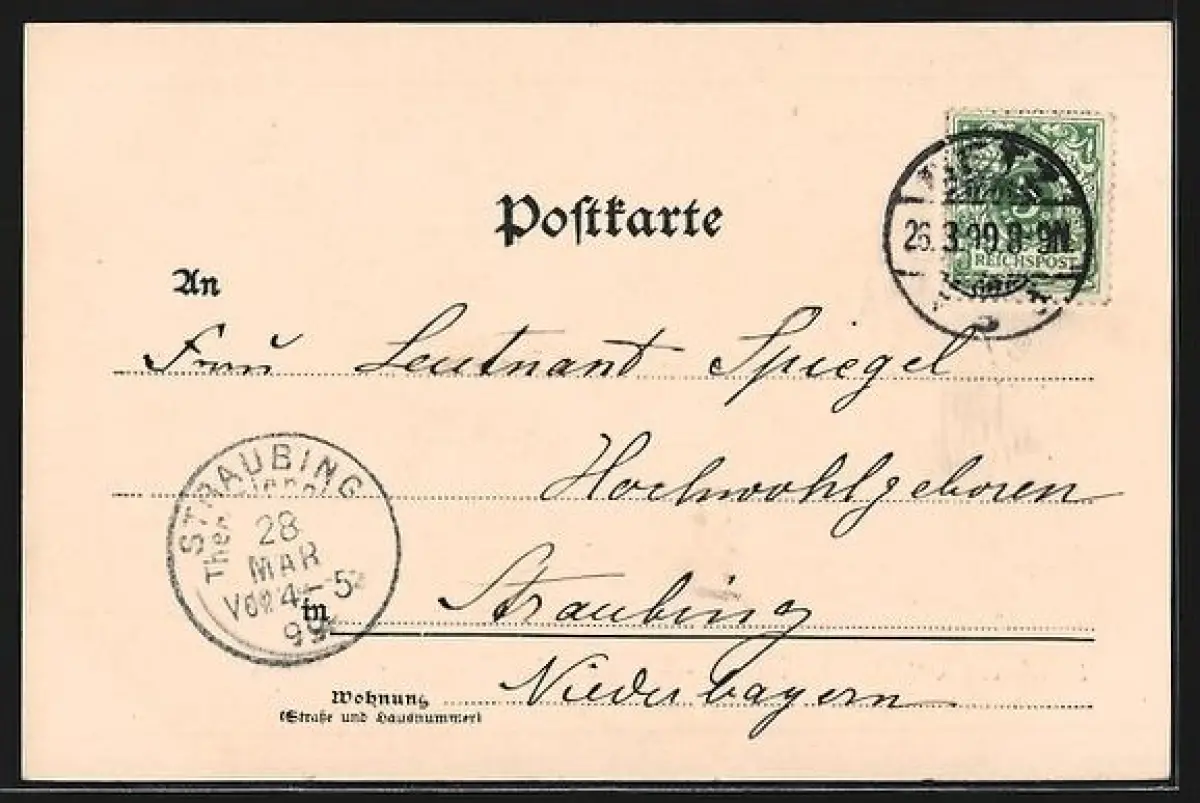 Postkarte
26.3.99.8-9N.
REICHSPOST
An
Frau Leutnant Spiegel
Hochwohlgeboren
STRAUBING
28
MAR
Vor 4-5
99
in Straubing
Wohnung Niederbayern
(Straße und Hausnummer)